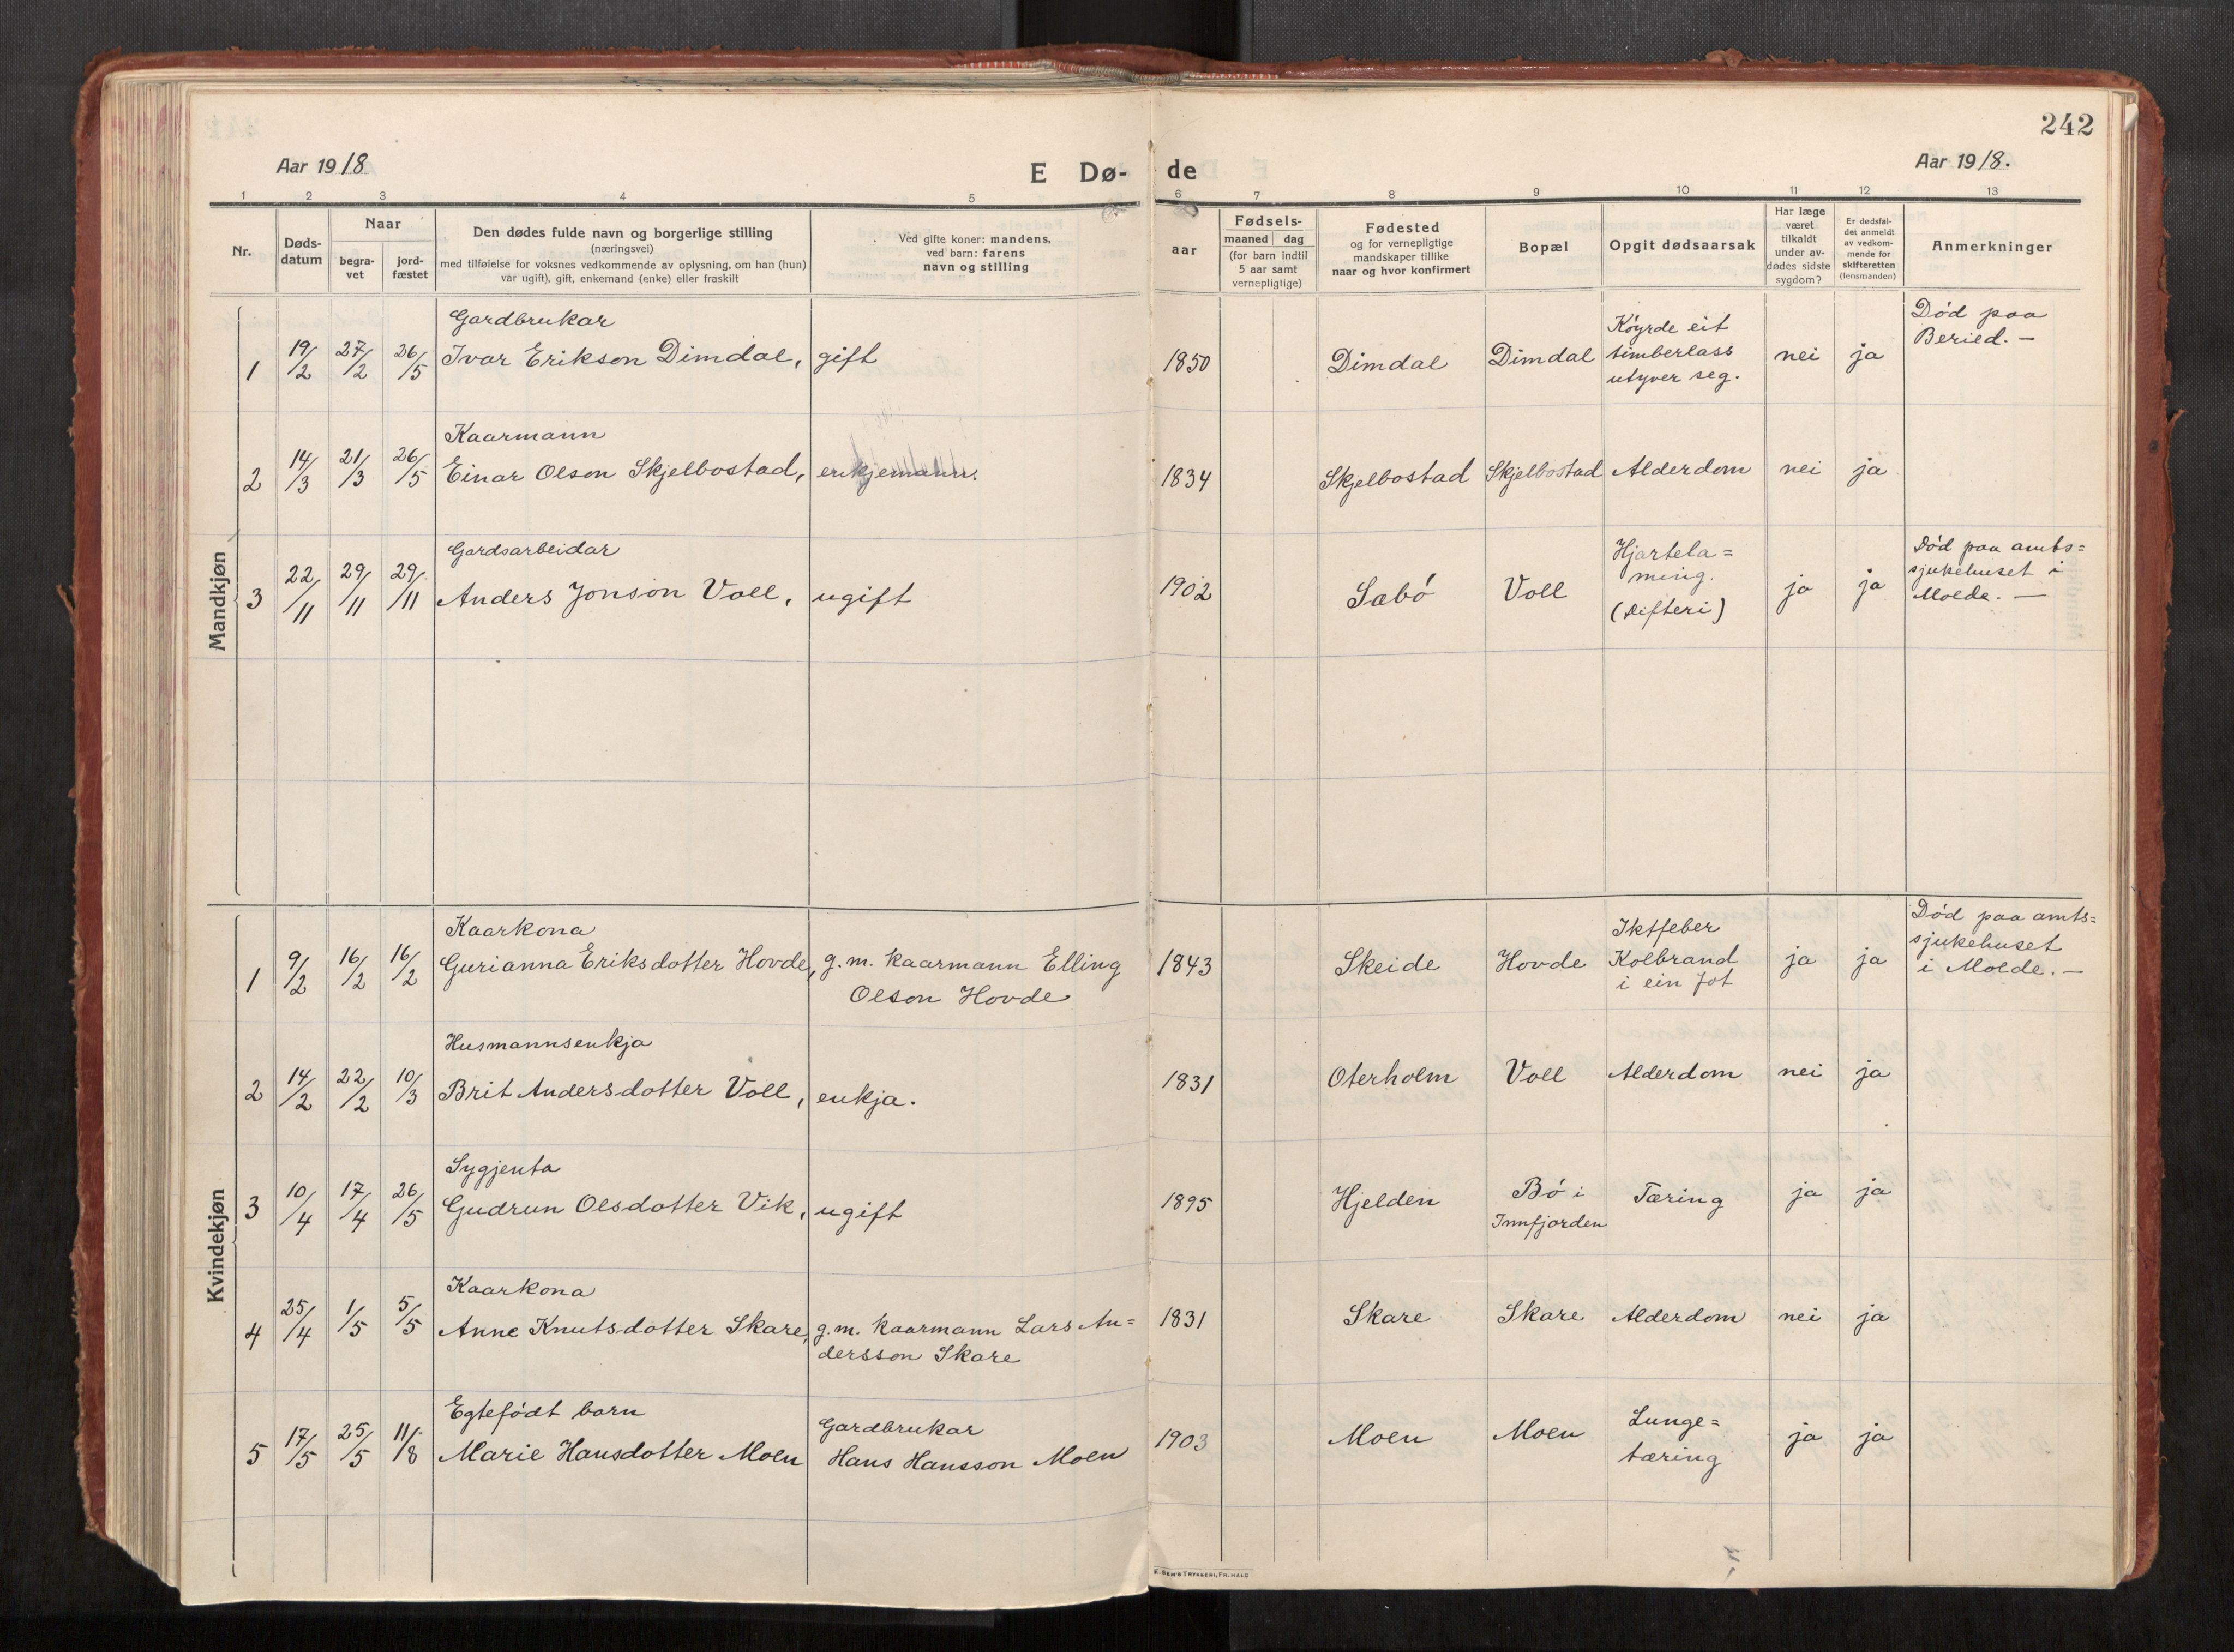 242
Aar 1918
E Dø-
de
Aar 1918.
1 2 3 4 5 6 7 8 9 10 11 12 13
Nr.
Døds-
datum
Naar
begra-
vet
jord-
fæstet
Den dødes fulde navn og borgerlige stilling
(næringsvei)
med tilføielse for voksnes vedkommende av oplysning, om han (hun)
var ugift, gift, enkemand (enke) eller fraskilt
Ved gifte koner: mandens,
ved barn: farens
navn og stilling
aar
Fødsels-
maaned dag
(for barn indtil
5 aar samt
vernepligtige)
Fødested
og for vernepligtige
mandskaper tillike
naar og hvor konfirmert
Bopæl
Opgit dødsaarsak
Har læge
været
tilkaldt
under av-
dødes sidste
sygdom?
Er dødsfal-
det anmeldt
av vedkom-
mende for
skifteretten
(lensmanden)
Anmerkninger
Mandkjøn
Gardbrukar
1 19/2 27/2 26/5 Ivar Erikson Dimdal, gift 1850 Dimdal Dimdal
Køyrde eit
timberlass
utyver seg.
nei ja
Død paa
Beried. —
Kaarmann
2 14/3 21/3 26/5 Einar Olson Skjelbostad, enkjemann. 1834 Skjelbostad Skjelbostad Alderdom nei ja
Gardsarbeidar
3 22/11 29/11 29/11 Anders Jonson Voll, ugift 1902 Sæbø Voll
Hjartela=
ming.
(Difteri)
ja ja
Død paa amts=
sjukehuset i
Molde. —
Kvindekjøn
Kaarkona
1 9/2 16/2 16/2 Gurianna Eriksdotter Hovde, g.m. kaarmann Elling
Olson Hovde
1843 Skeide Hovde
Iktfeber
Kolbrand
i ein fot
ja ja
Død paa amts=
sjukehuset
i Molde. —
Husmannsenkja
2 14/2 22/2 10/3 Brit Andersdotter Voll, enkja. 1831 Oterholm Voll Alderdom nei ja
Sygjenta
3 10/4 17/4 26/5 Gudrun Olsdotter Vik, ugift 1895 Hjelden
Bø i
Innfjorden
Tæring ja ja
Kaarkona
4 25/4 1/5 5/5 Anne Knutsdotter Skare, g.m. kaarmann Lars An=
dersson Skare
1831 Skare Skare Alderdom nei ja
Egtefødt barn
5 17/5 25/5 11/8 Marie Hansdotter Moen
Gardbrukar
Hans Hansson Moen
1903 Moen Moen
Lunge=
tæring
ja ja